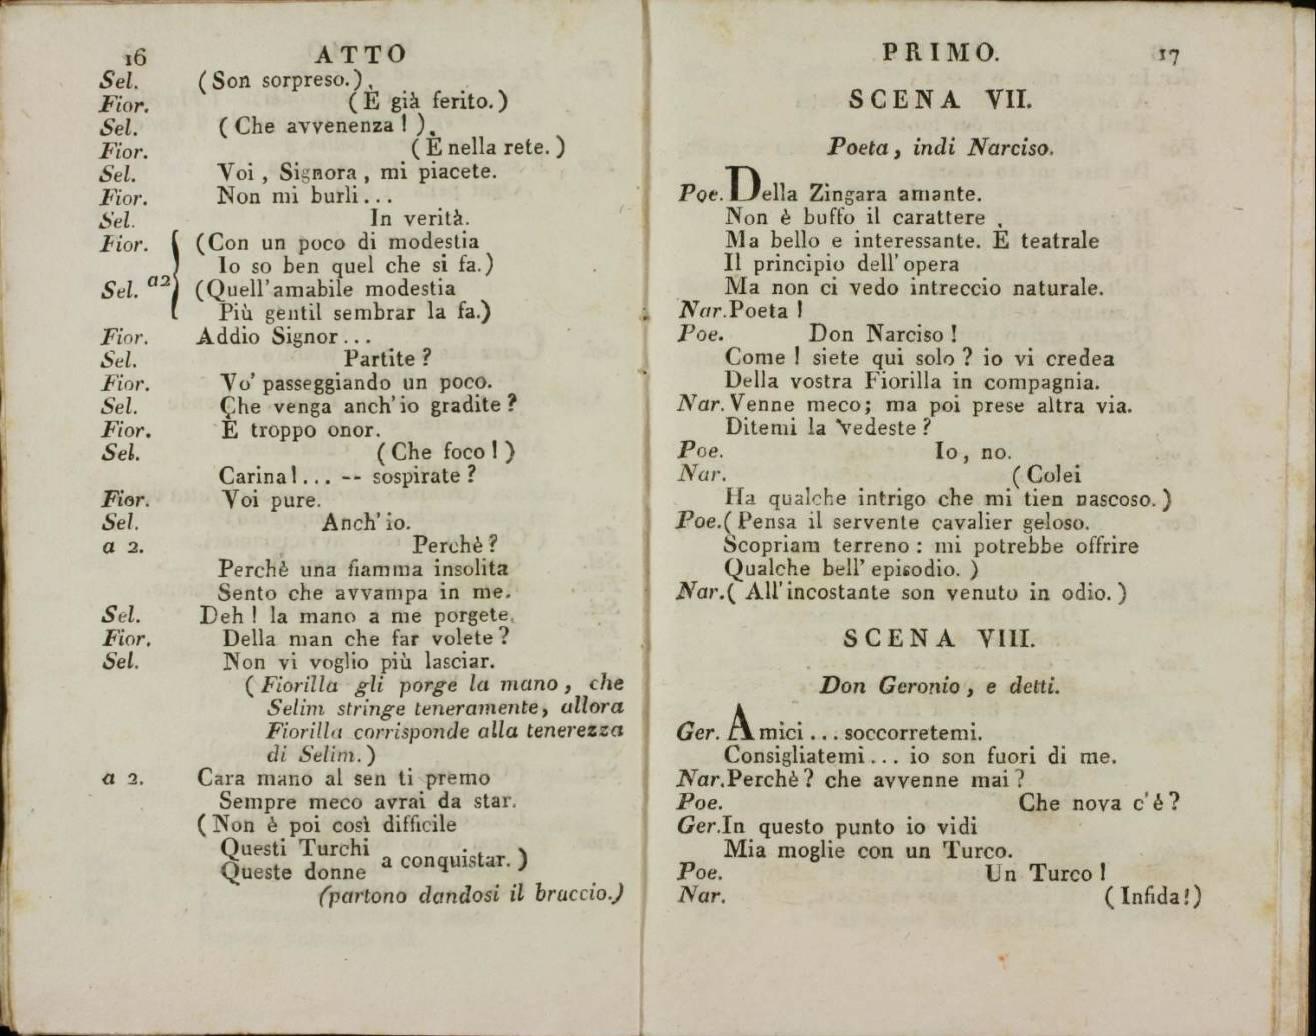 16 ATTO
Sel. (Son sorpreso.)
Fior. (È già ferito.)
Sel. (Che avvenenza!)
Fior. (È nella rete.)
Sel. Voi, Signora, mi piacete.
Fior. Non mi burli...
Sel. In verità.
Fior. (Con un poco di modestia
Io so ben quel che si fa.)
Sel. a2 (Quell'amabile modestia
Più gentil sembrar la fa.)
Fior. Addio Signor...
Sel. Partite?
Fior. Vo' passeggiando un poco.
Sel. Che venga anch'io gradite?
Fior. È troppo onor.
Sel. (Che foco!)
Carina!... -- sospirate?
Fior. Voi pure.
Sel. Anch'io.
a 2. Perchè?
Perchè una fiamma insolita
Sento che avvampa in me.
Sel. Deh! la mano a me porgete.
Fior. Della man che far volete?
Sel. Non vi voglio più lasciar.
(Fiorilla gli porge la mano, che
Selim stringe teneramente, allora
Fiorilla corrisponde alla tenerezza
di Selim.)
a 2. Cara mano al sen ti premo
Sempre meco avrai da star.
(Non è poi così difficile
Questi Turchi
Queste donne a conquistar.)
(partono dandosi il braccio.)
PRIMO. 17
SCENA VII.
Poeta, indi Narciso.
Poe. Della Zingara amante.
Non è buffo il carattere,
Ma bello e interessante. È teatrale
Il principio dell'opera
Ma non ci vedo intreccio naturale.
Nar. Poeta!
Poe. Don Narciso!
Come! siete qui solo? io vi credea
Della vostra Fiorilla in compagnia.
Nar. Venne meco; ma poi prese altra via.
Ditemi la vedeste?
Poe. Io, no.
Nar. (Colei
Ha qualche intrigo che mi tien nascoso.)
Poe. (Pensa il servente cavalier geloso.
Scopriam terreno: mi potrebbe offrire
Qualche bell'episodio.)
Nar. (All'incostante son venuto in odio.)
SCENA VIII.
Don Geronio, e detti.
Ger. Amici... soccorretemi.
Consigliatemi... io son fuori di me.
Nar. Perchè? che avvenne mai?
Poe. Che nova c'è?
Ger. In questo punto io vidi
Mia moglie con un Turco.
Poe. Un Turco!
Nar. (Infida!)